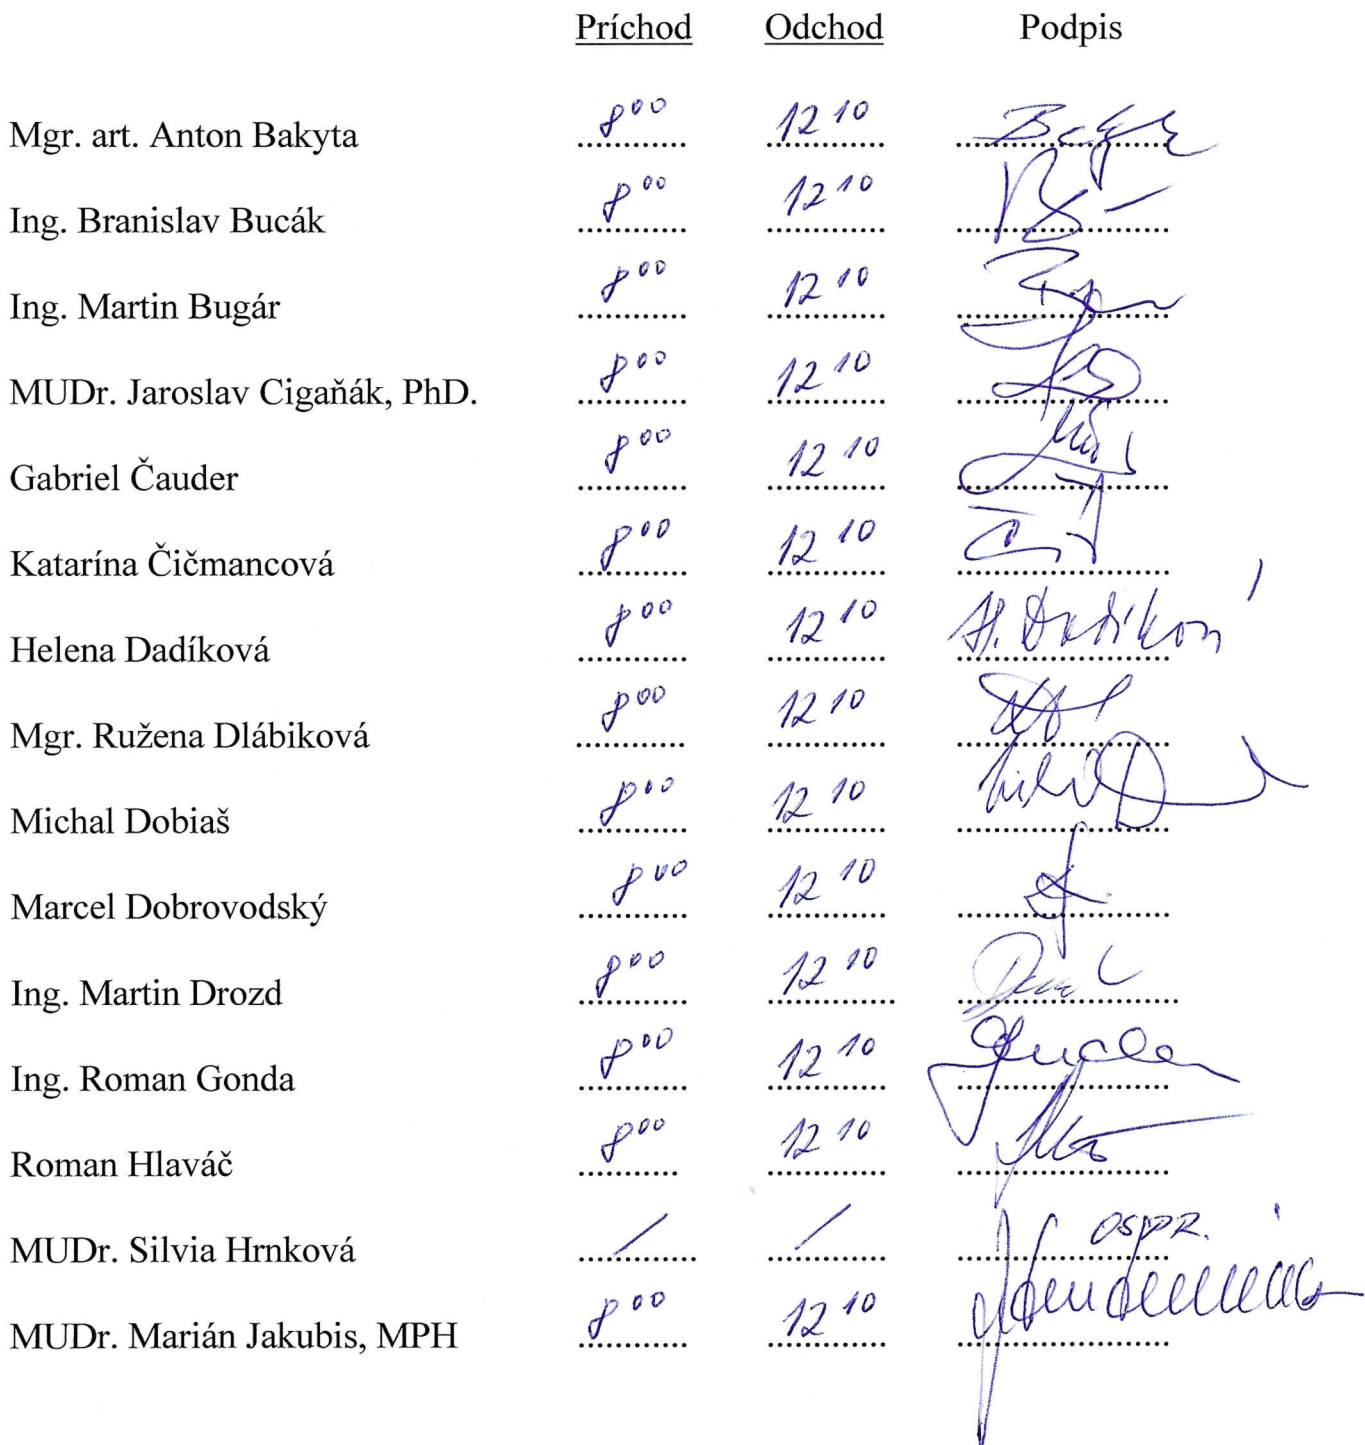 Príchod Odchod Podpis
Mgr. art. Anton Bakyta 8⁰⁰ 12¹⁰
Ing. Branislav Bucák 8⁰⁰ 12¹⁰
Ing. Martin Bugár 8⁰⁰ 12¹⁰
MUDr. Jaroslav Cigaňák, PhD. 8⁰⁰ 12¹⁰
Gabriel Čauder 8⁰⁰ 12¹⁰
Katarína Čičmancová 8⁰⁰ 12¹⁰
Helena Dadíková 8⁰⁰ 12¹⁰ H. Dadíková
Mgr. Ružena Dlábiková 8⁰⁰ 12¹⁰
Michal Dobiaš 8⁰⁰ 12¹⁰
Marcel Dobrovodský 8⁰⁰ 12¹⁰
Ing. Martin Drozd 8⁰⁰ 12¹⁰
Ing. Roman Gonda 8⁰⁰ 12¹⁰
Roman Hlaváč 8⁰⁰ 12¹⁰
MUDr. Silvia Hrnková / / OSPR.
MUDr. Marián Jakubis, MPH 8⁰⁰ 12¹⁰